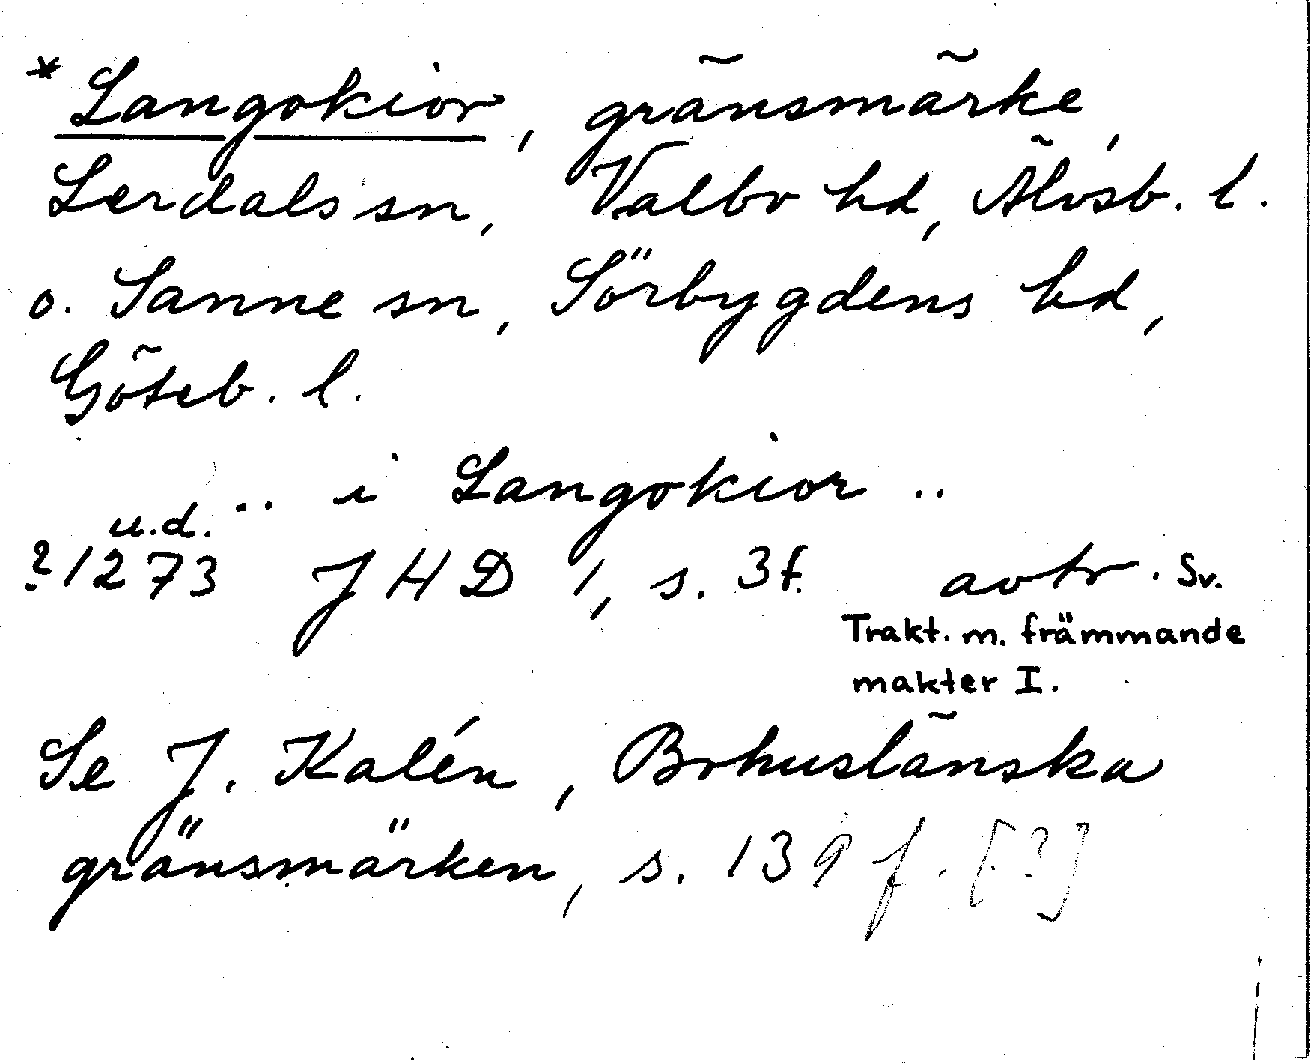 * Langokior, gränsmärke,
Lerdals sn, Valbo hd, Älvsb. l.
o. Sanne sn, Sörbygdens hd,
Göteb. l.
... i Langokior ..
u.d.
?1273 J H D 1, s. 3f. avtr. Sv.
Trakt. m. främmande
makter I.
Se J. Kalén, Bohuslänska
gränsmärken, s. 139 f. [?]